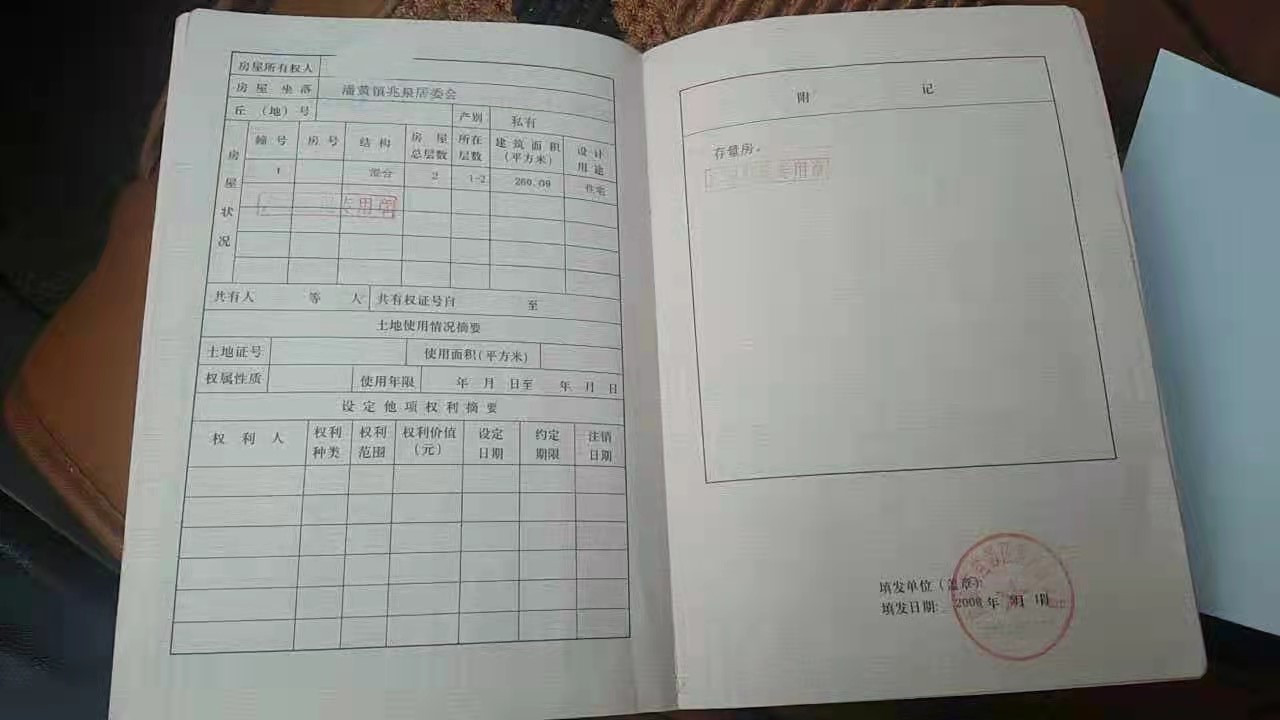 房屋所有权人
房屋坐落 潘黄镇兆泉居委会
丘（地）号 产别 私有
房屋状况
幢号 房号 结构 房屋总层数 所在层数 建筑面积（平方米） 设计用途
1 混合 2 1-2 260.09 住宅
用章
共有人 等 人 共有权证号自 至
土地使用情况摘要
土地证号 使用面积(平方米)
权属性质 使用年限 年 月 日至 年 月 日
设定他项权利摘要
权利人 权利种类 权利范围 权利价值（元） 设定日期 约定期限 注销日期
附 记
存量房。
专用章
填发单位（盖章）:
填发日期: 2008 年 月 日